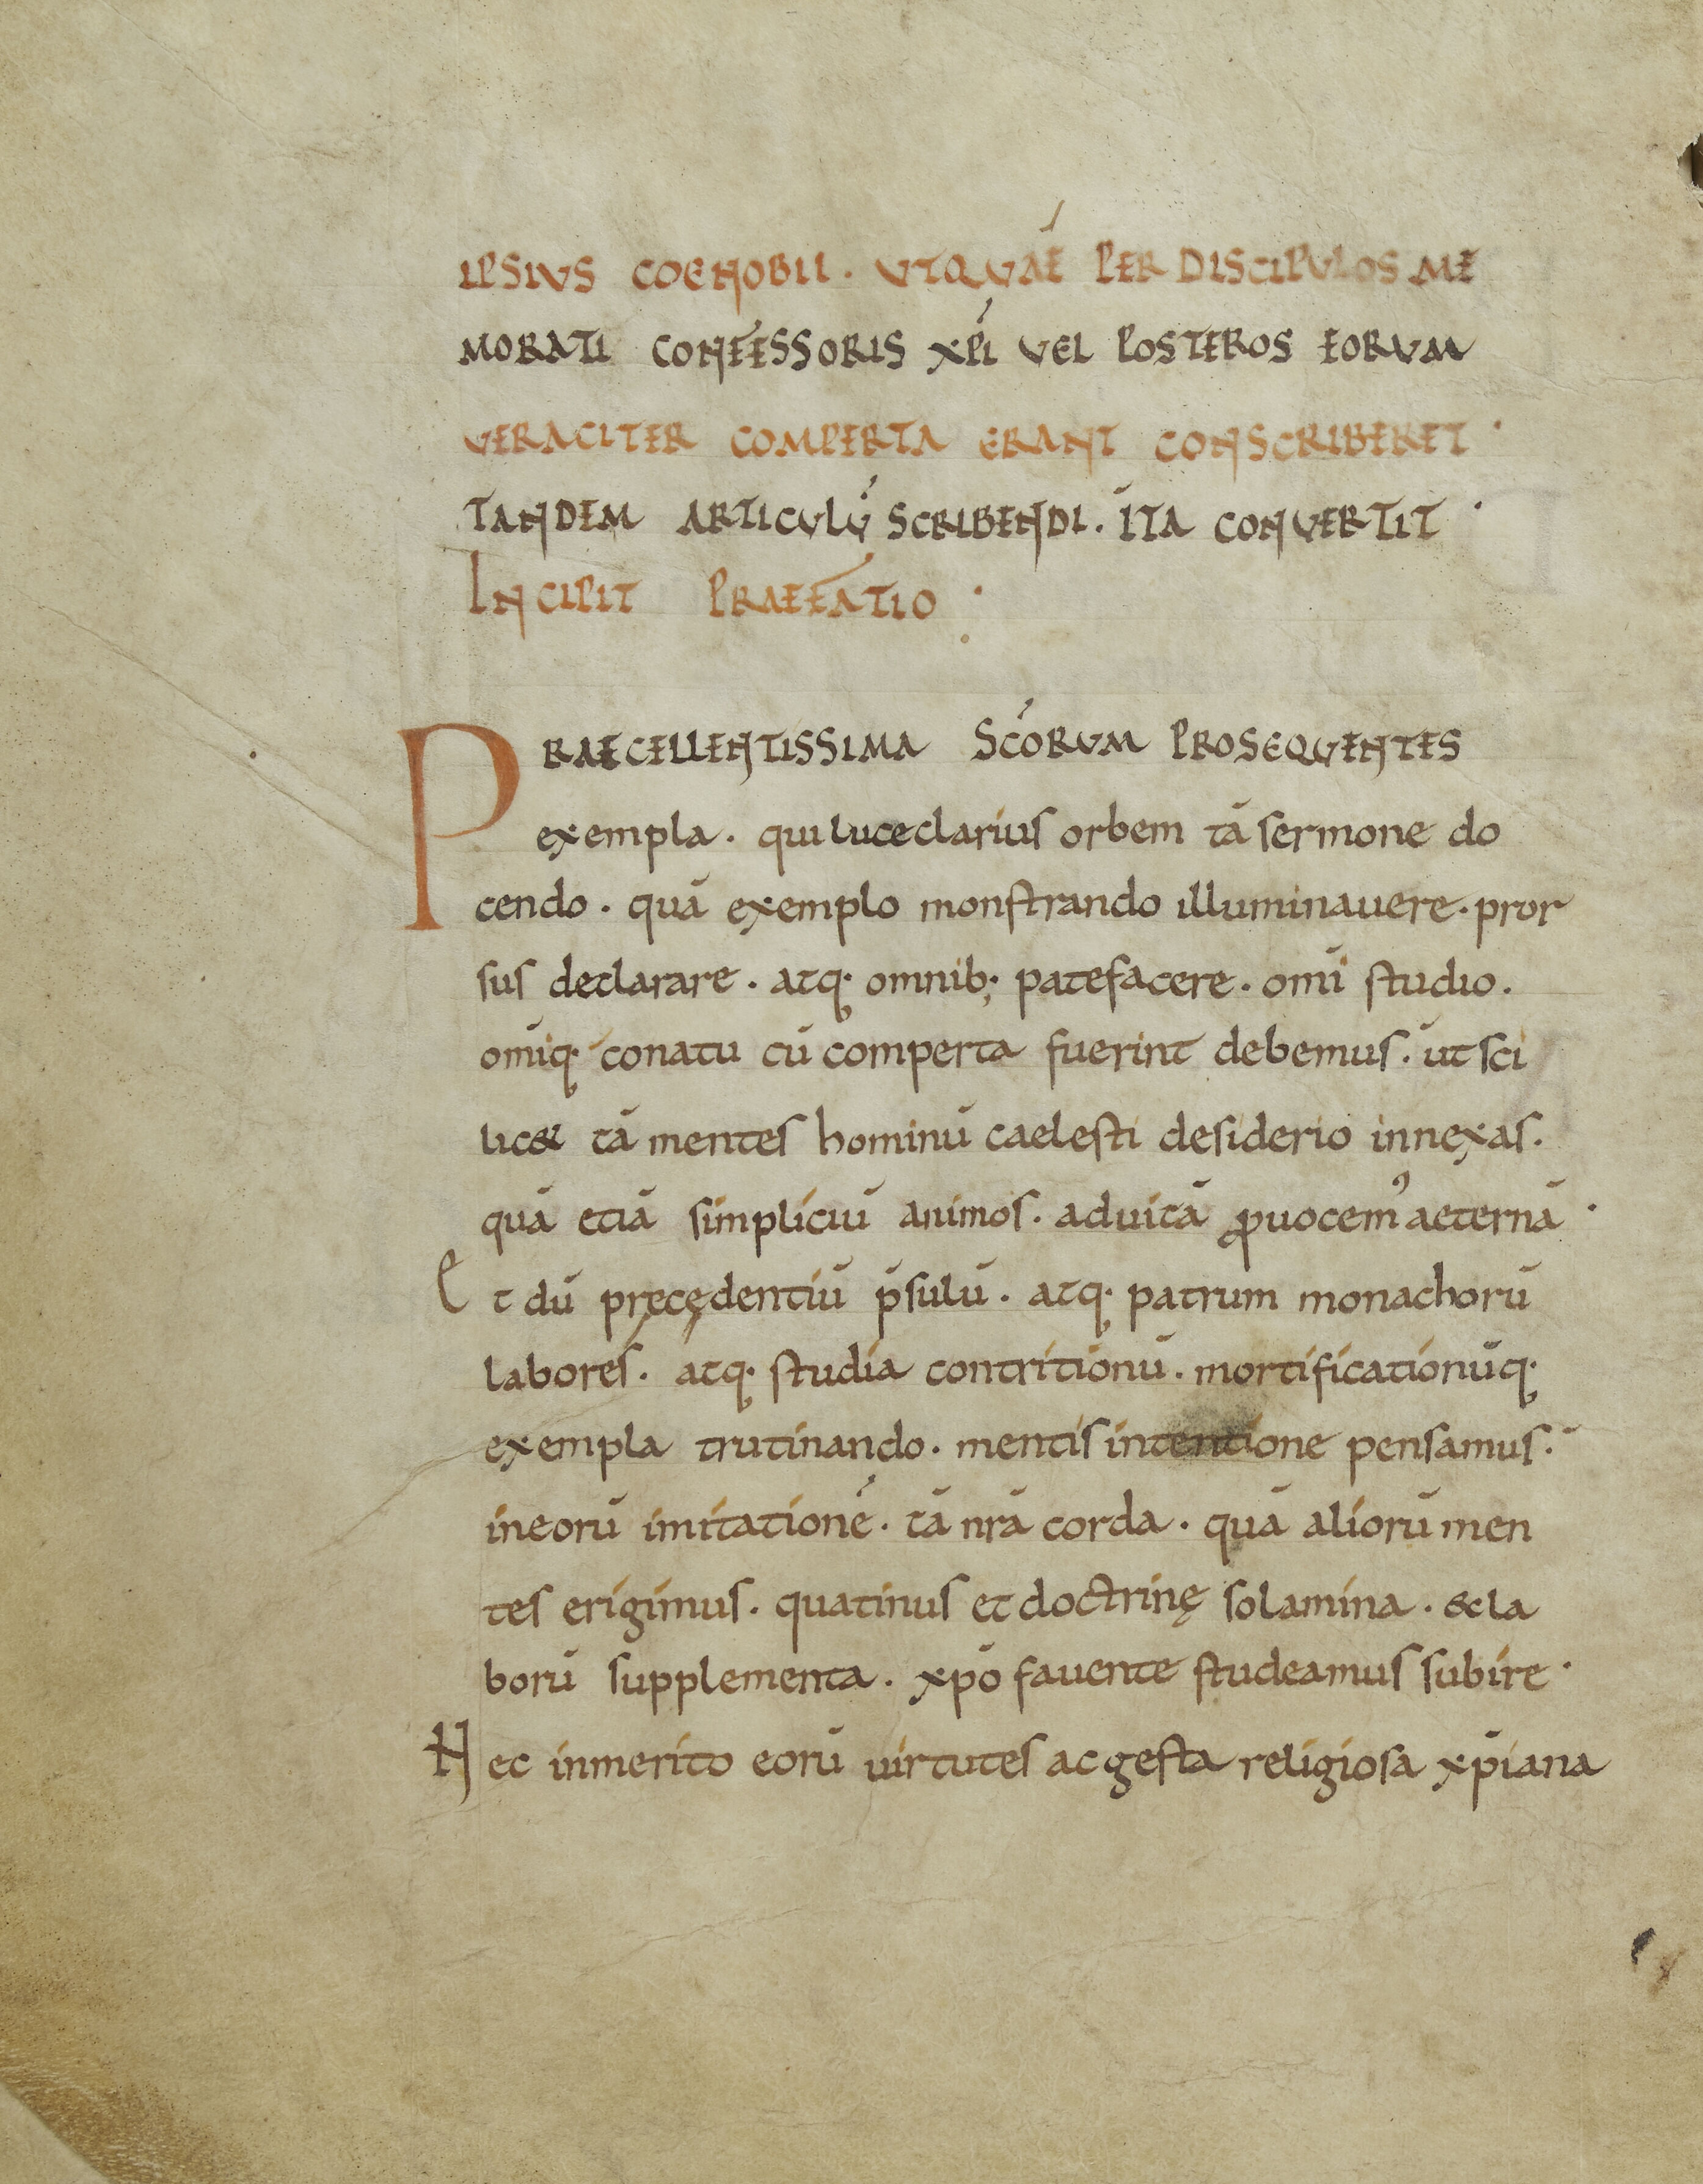 IPSIVS COENOBII. VTQVAE PER DISCIPVLOS ME
MORATI CONFESSORIS XPI VEL POSTEROS EORVM
VERACITER COMPERTA ERANT CONSCRIBERET·
TANDEM ARTICVLŪ SCRIBENDI. ITA CONVERTIT·
INCIPIT PRAEFATIO:
PRAECELLENTISSIMA SCORVM PROSEQVENTES
exempla. qui luce clarius orbem tā sermone do
cendo. quā exemplo monstrando illuminauere. pror
sus declarare. atq· omnib; patefacere. omi studio.
omīq· conatu cū comperta fuerint debemus. ut sci
lic& tā mentes hominū caelesti desiderio innexas.
quā etiā simpliciū animos. aduitā ꝓuocemꝰ aeternā·
Et dū pręcędentiū p̄sulū. atq· patrum monachorū
labores. atq· studia contritionū. mortificationūq·
exempla trutinando. mentis intentione pensamus.
ineorū imitatione. tā nrā corda. quā aliorū men
tes erigimus. quatinus et doctrinę solamina. & la
borū supplementa. xpō fauente studeamus subire·
Nec inmerito eorū uirtutes ac gesta religiosa xp̄iana